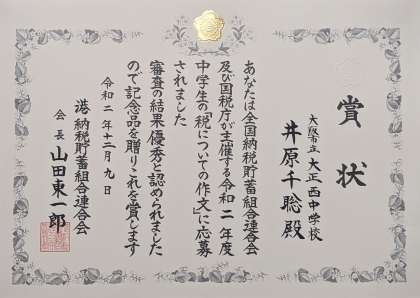 賞状
大阪市立大正西中学校
井原千聡殿
あなたは全国納税貯蓄組合連合会
及び国税庁が主催する令和二年度
中学生の「税についての作文」に応募
されました
審査の結果優秀と認められました
ので記念品を贈りこれを賞します
令和二年十二月九日
港納税貯蓄組合連合会
会長 山田東一郎